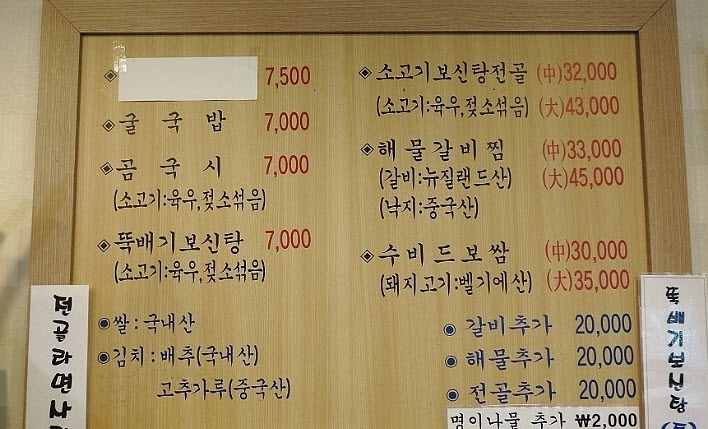 ◈ 7,500
◈ 굴국밥 7,000
◈ 곰국시 7,000
(소고기:육우,젖소섞음)
◈ 뚝배기보신탕 7,000
(소고기:육우,젖소섞음)
◉ 쌀:국내산
◉ 김치:배추(국내산)
고추가루(중국산)
◈ 소고기보신탕전골 (中)32,000
(소고기:육우,젖소섞음) (大)43,000
◈ 해물갈비찜 (中)33,000
(갈비:뉴질랜드산) (大)45,000
(낙지:중국산)
◈ 수비드보쌈 (中)30,000
(돼지고기:벨기에산) (大)35,000
◉ 갈비추가 20,000
◉ 해물추가 20,000
◉ 전골추가 20,000
명이나물 추가 ₩2,000
전골라면사
뚝배기보신탕